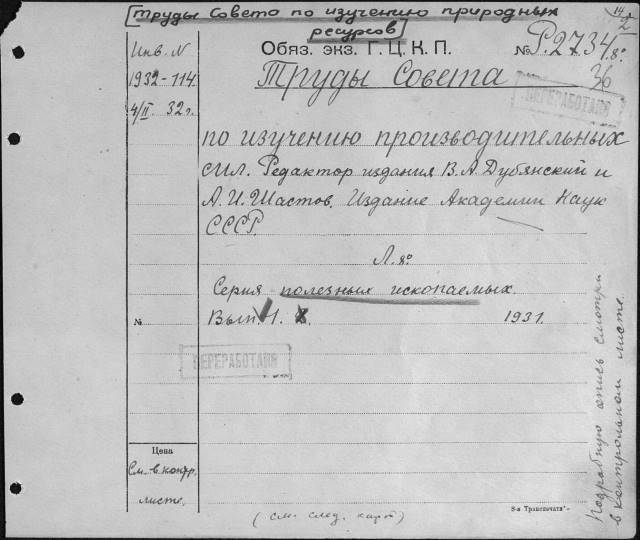 [Труды Совета по изучению природных
ресурсов]
14
2
Инв. N
1932-114
4/II 32 г.
Обяз. экз. Г. Ц. К. П.
№ Р.2734 8°
36
Труды Совета
ПЕРЕРАБОТАНА
по изучению производительных
сил. Редактор издания В. А. Дубянский и
А. И. Шастов. Издание Академии Наук
СССР.
Л. 8°
Серия полезных ископаемых.
№
Вып. 1. 1931.
ПЕРЕРАБОТАНА
Подробную опись смотри
в контрольном листе.
Цена
См. в контр.
листе.
8-я Транспечати
(см. след. карт)